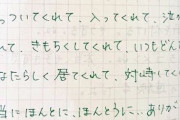 っついてくれて、入ってくれて、
べて、きもちくしてくれて、いつもどん
なたらしく居てくれて、対峙してく
当にほんとに、ほんとうに…ありが